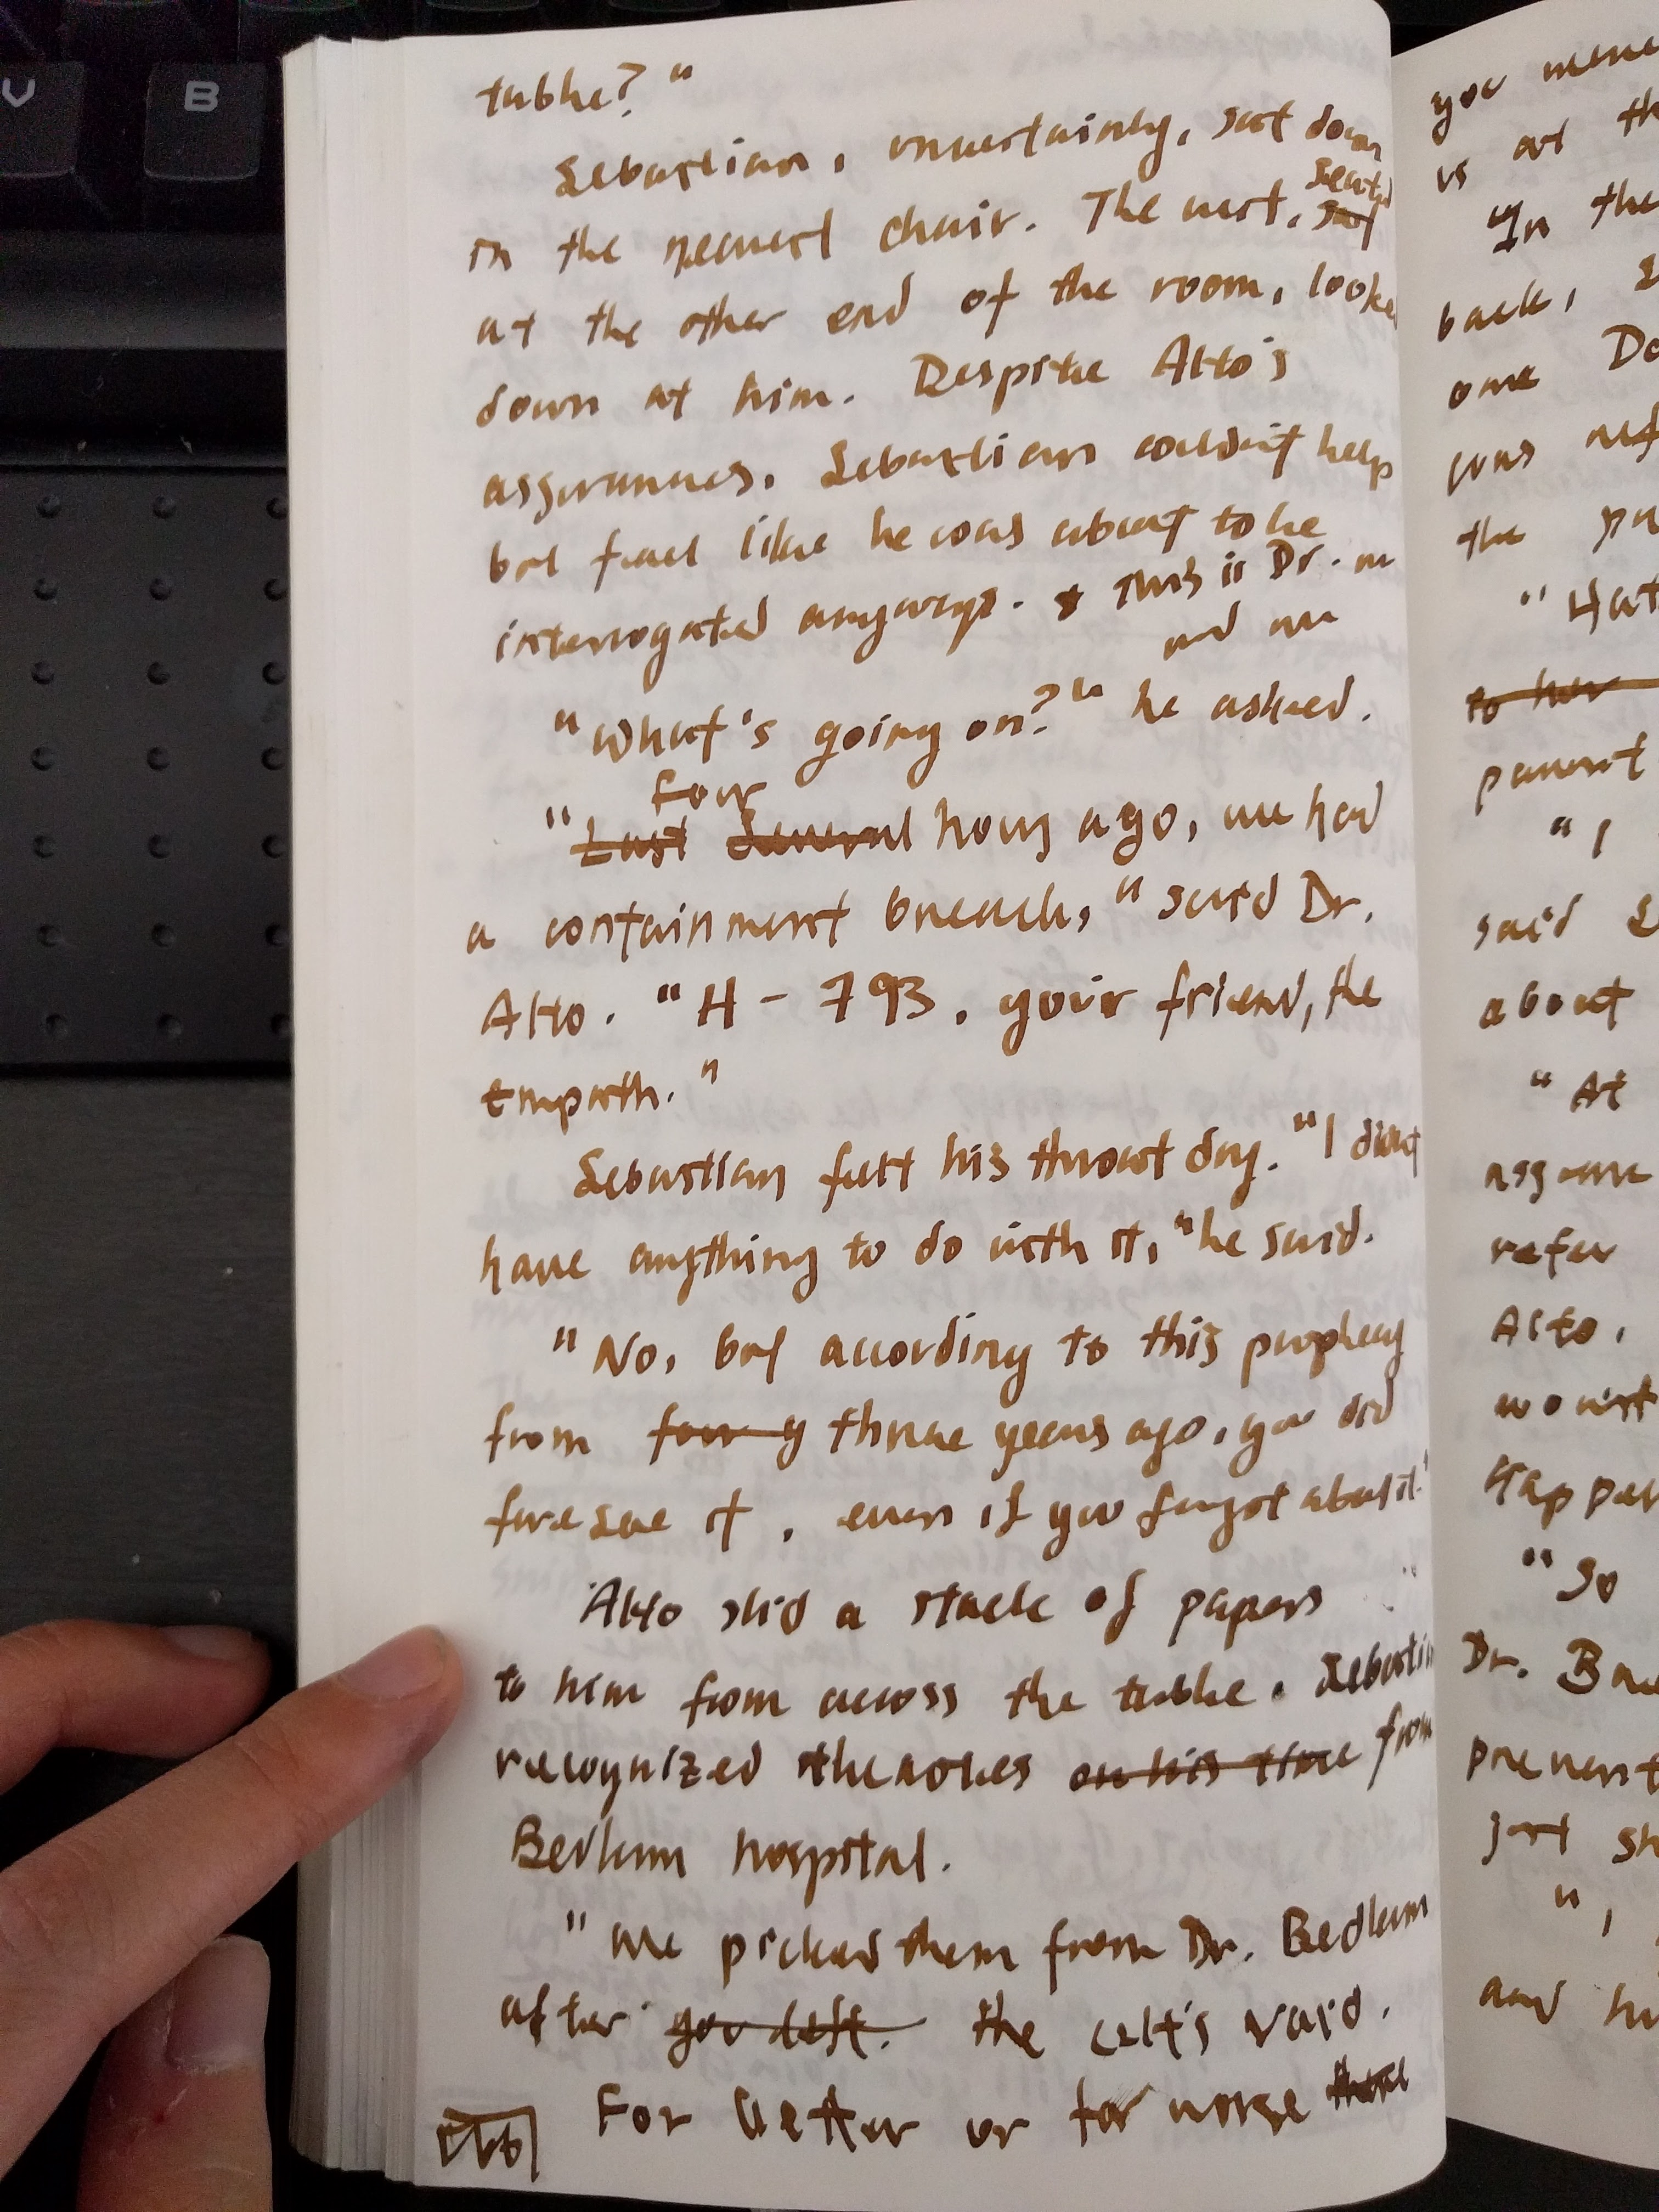 V
B
table?"
Sebastian, uncertainly, sat down
in the nearest chair. The rest, seated sat
at the other end of the room, looked
down at him. Despite Alto's
assurances, Sebastian couldn't help
but feel like he was about to be
interrogated anyways. This is Dr.
and
"What's going on?" he asked.
four
"Last Several hours ago, we had
a containment breach," said Dr.
Alto. "H-793, your friend, the
empath."
Sebastian felt his throat dry. "I didn't
have anything to do with it," he said.
"No, but according to this prophecy
from four y three years ago, you did
foresee it, even if you forgot about it."
Alto slid a stack of papers
to him from across the table. Sebastian
recognized the notes on his time from
Bedlam hospital.
"We picked them from Dr. Bedlam
after you left. the cult's raid.
For better or for worse
you
is at the
In the
back,
one
was
the
"Hat
to her
parent
"I
said
about
"At
assume
refer
Alto,
won't
Happen
"So
Dr.
prevent
just
",
and